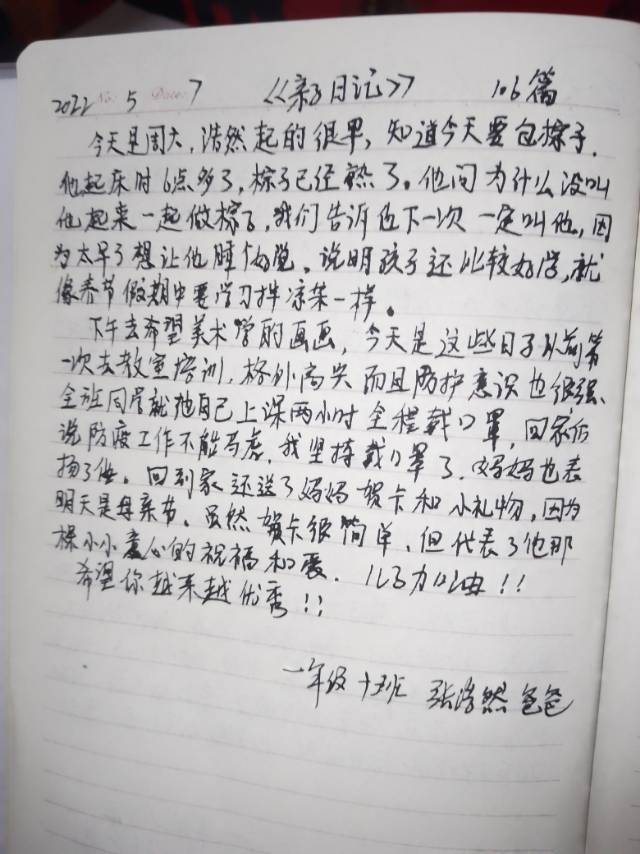 2022 No: 5 Date: 7 《亲子日记》 106篇
今天是周六，浩然起的很早，知道今天要包棕子.
他起床时6点多了，棕子已经熟了。他问为什么没叫
他起来一起做棕子，我们告诉他下一次一定叫他，因
为太早了想让他睡个好觉。说明孩子还比较好学，就
像春节假期中要学习拌凉菜一样。
下午去希望美术学的画画，今天是这些日子以前第
一次去教室培训，格外高兴而且防护意识也很强、
全班同学就他自己上课两小时全程戴口罩，回家后
说防疫工作不能马虎，我坚持戴口罩了.妈妈也表
扬了他。回到家还送了妈妈贺卡和小礼物，因为
明天是母亲节。虽然贺卡很简单，但代表了他那
棵小小童心的祝福和爱. 儿子加油！！
希望你越来越优秀！！
一年级十班 张浩然爸爸